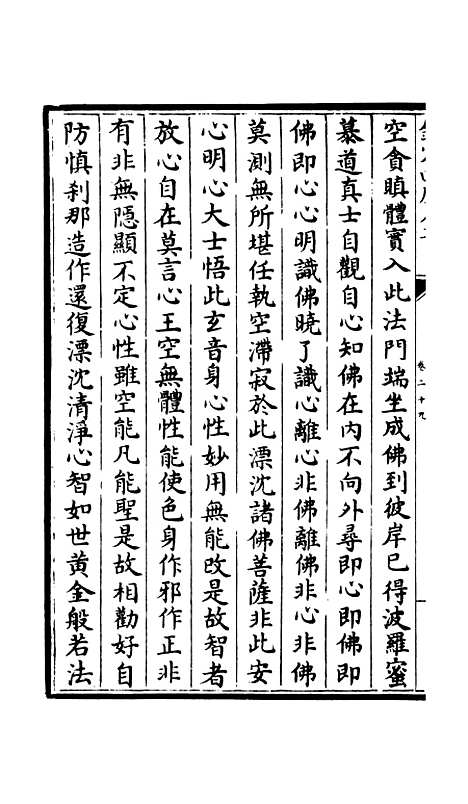 卷二十九
空貪瞋體實入此法門端坐成佛到彼岸已得波羅蜜
慕道真士自觀自心知佛在內不向外尋即心即佛即
佛即心心明識佛曉了識心離心非佛離佛非心非佛
莫測無所堪任執空滯寂於此漂沈諸佛菩薩非此安
心明心大士悟此玄音身心性妙用無能改是故智者
放心自在莫言心王空無體性能使色身作邪作正非
有非無隱顯不定心性雖空能凡能聖是故相勸好自
防慎剎那造作還復漂沈清淨心智如世黃金般若法